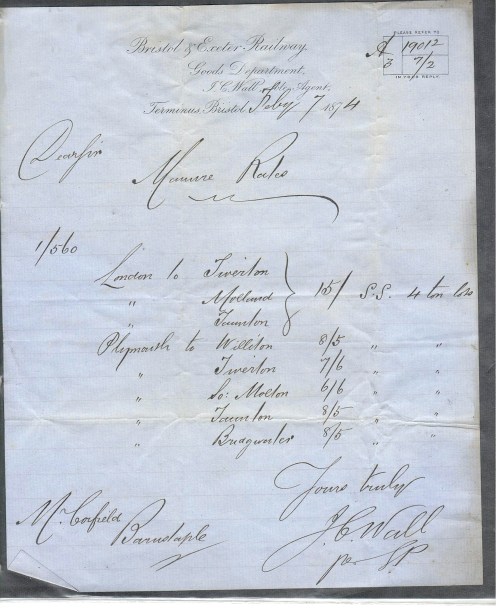 PLEASE REFER TO
A 19012
3 7/2
IN YOUR REPLY.
Bristol & Exeter Railway.
Goods Department,
J. C. Wall, Agent.
Terminus, Bristol Feby 7 1874
Dear Sir
Manure Rates
1/560
London to Tiverton
" Molland 15/ S.S. 4 ton lots
" Taunton
Plymouth to Williton 8/5 " "
" Tiverton 7/6 " "
" So: Molton 6/6 " "
" Taunton 8/5 " "
" Bridgwater 8/5 " "
Yours truly
J. C. Wall
per
Mr Corfield
Barnstaple